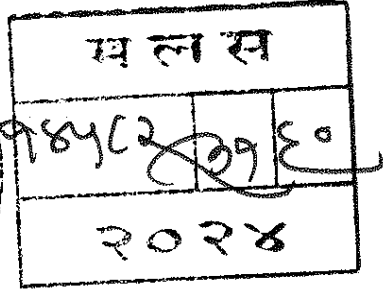 म ल स
१४५८२ ७१ ६०
२०२४